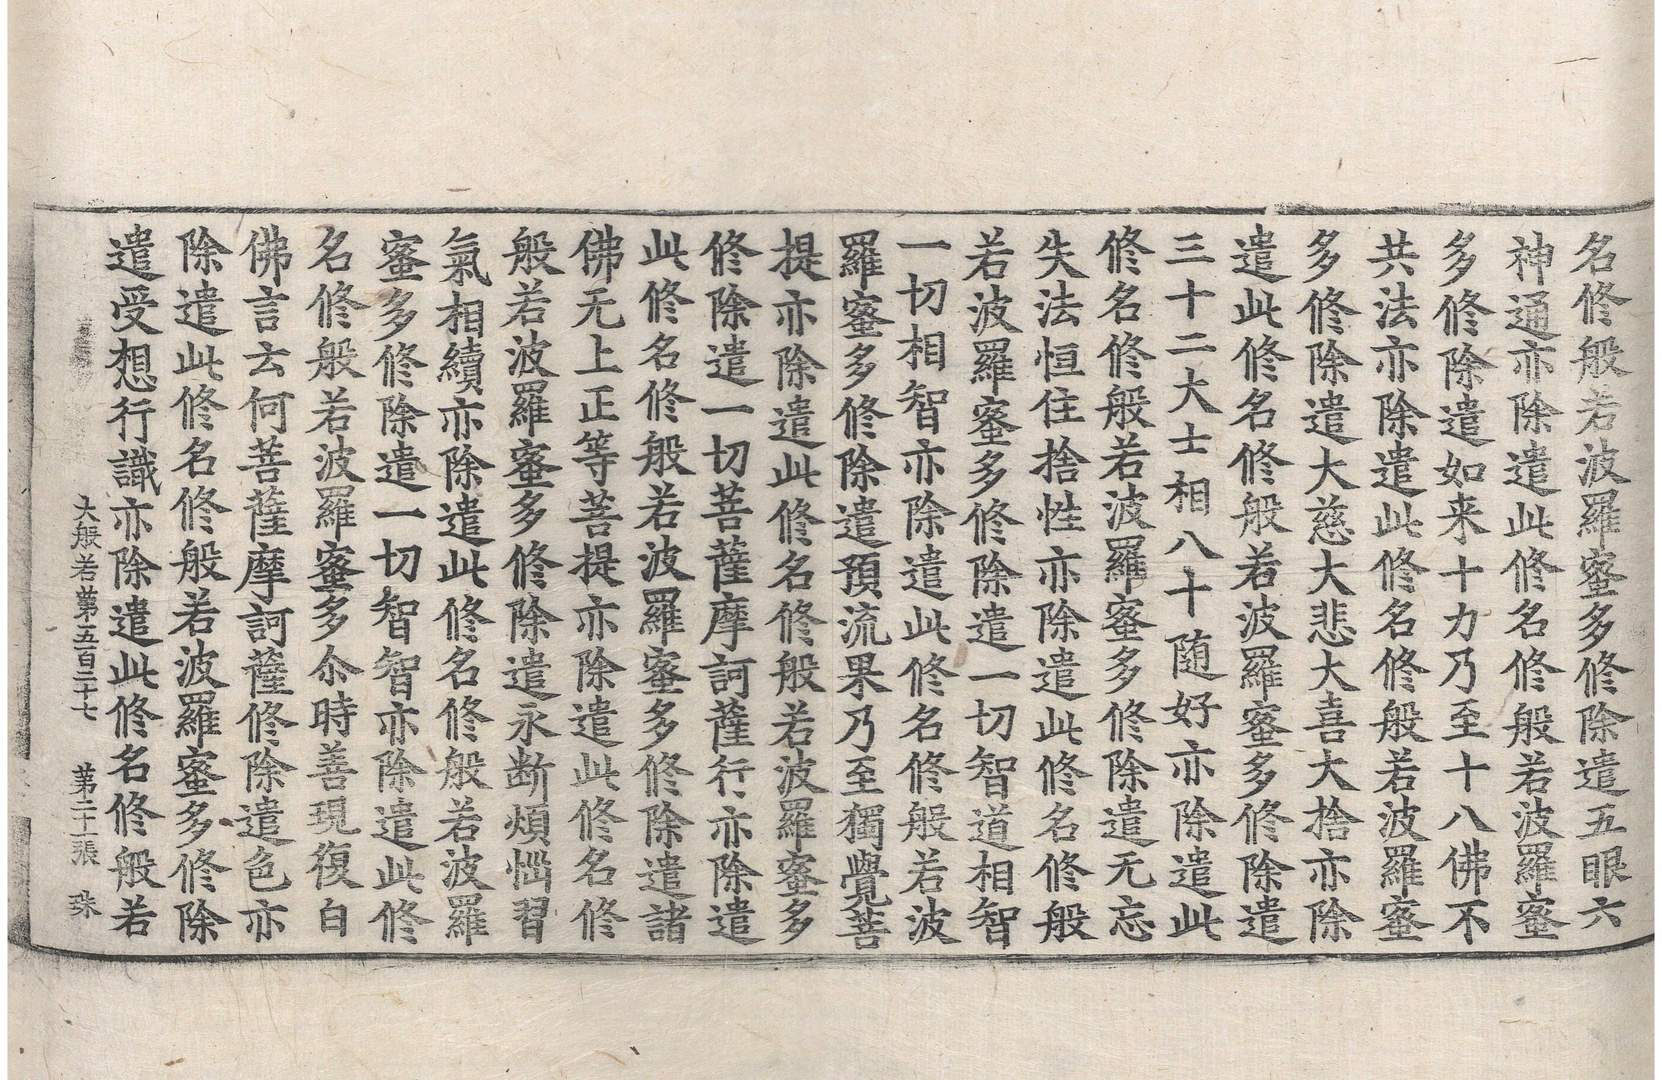 名修般若波羅蜜多修除遣五眼六
神通亦除遣此修名修般若波羅蜜
多修除遣如来十力乃至十八佛不
共法亦除遣此修名修般若波羅蜜
多修除遣大慈大悲大喜大捨亦除
遣此修名修般若波羅蜜多修除遣
三十二大士相八十随好亦除遣此
修名修般若波羅蜜多修除遣无忘
失法恒住捨性亦除遣此修名修般
若波羅蜜多修除遣一切智道相智
一切相智亦除遣此修名修般若波
羅蜜多修除遣預流果乃至獨覺菩
提亦除遣此修名修般若波羅蜜多
修除遣一切菩薩摩訶薩行亦除遣
此修名修般若波羅蜜多修除遣諸
佛无上正等菩提亦除遣此修名修
般若波羅蜜多修除遣永断煩惱習
氣相續亦除遣此修名修般若波羅
蜜多修除遣一切智智亦除遣此修
名修般若波羅蜜多尒時善現復白
佛言云何菩薩摩訶薩修除遣色亦
除遣此修名修般若波羅蜜多修除
遣受想行識亦除遣此修名修般若
大般若第五百二十七 第二十二張 珠